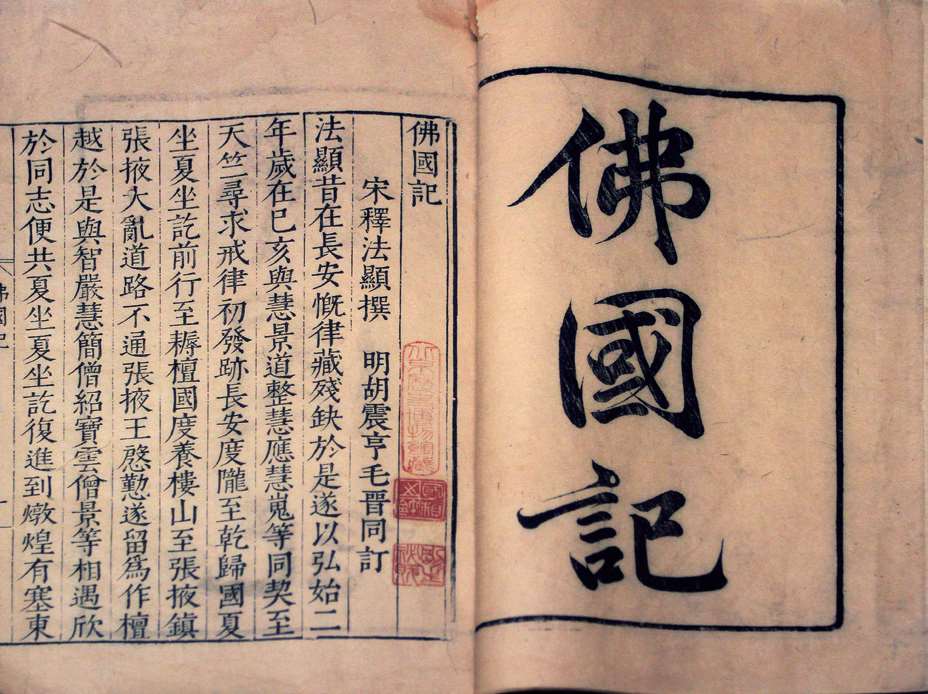 佛國記
佛國記
宋釋法顯撰 明胡震亨毛晉同訂
法顯昔在長安慨律藏殘缺於是遂以弘始二
年歲在己亥與慧景道整慧應慧嵬等同契至
天竺尋求戒律初發跡長安度隴至乾歸國夏
坐夏坐訖前行至耨檀國度養樓山至張掖鎮
張掖大亂道路不通張掖王慇懃遂留為作檀
越於是與智嚴慧簡僧紹寶雲僧景等相遇欣
於同志便共夏坐夏坐訖復進到燉煌有塞東
佛國記